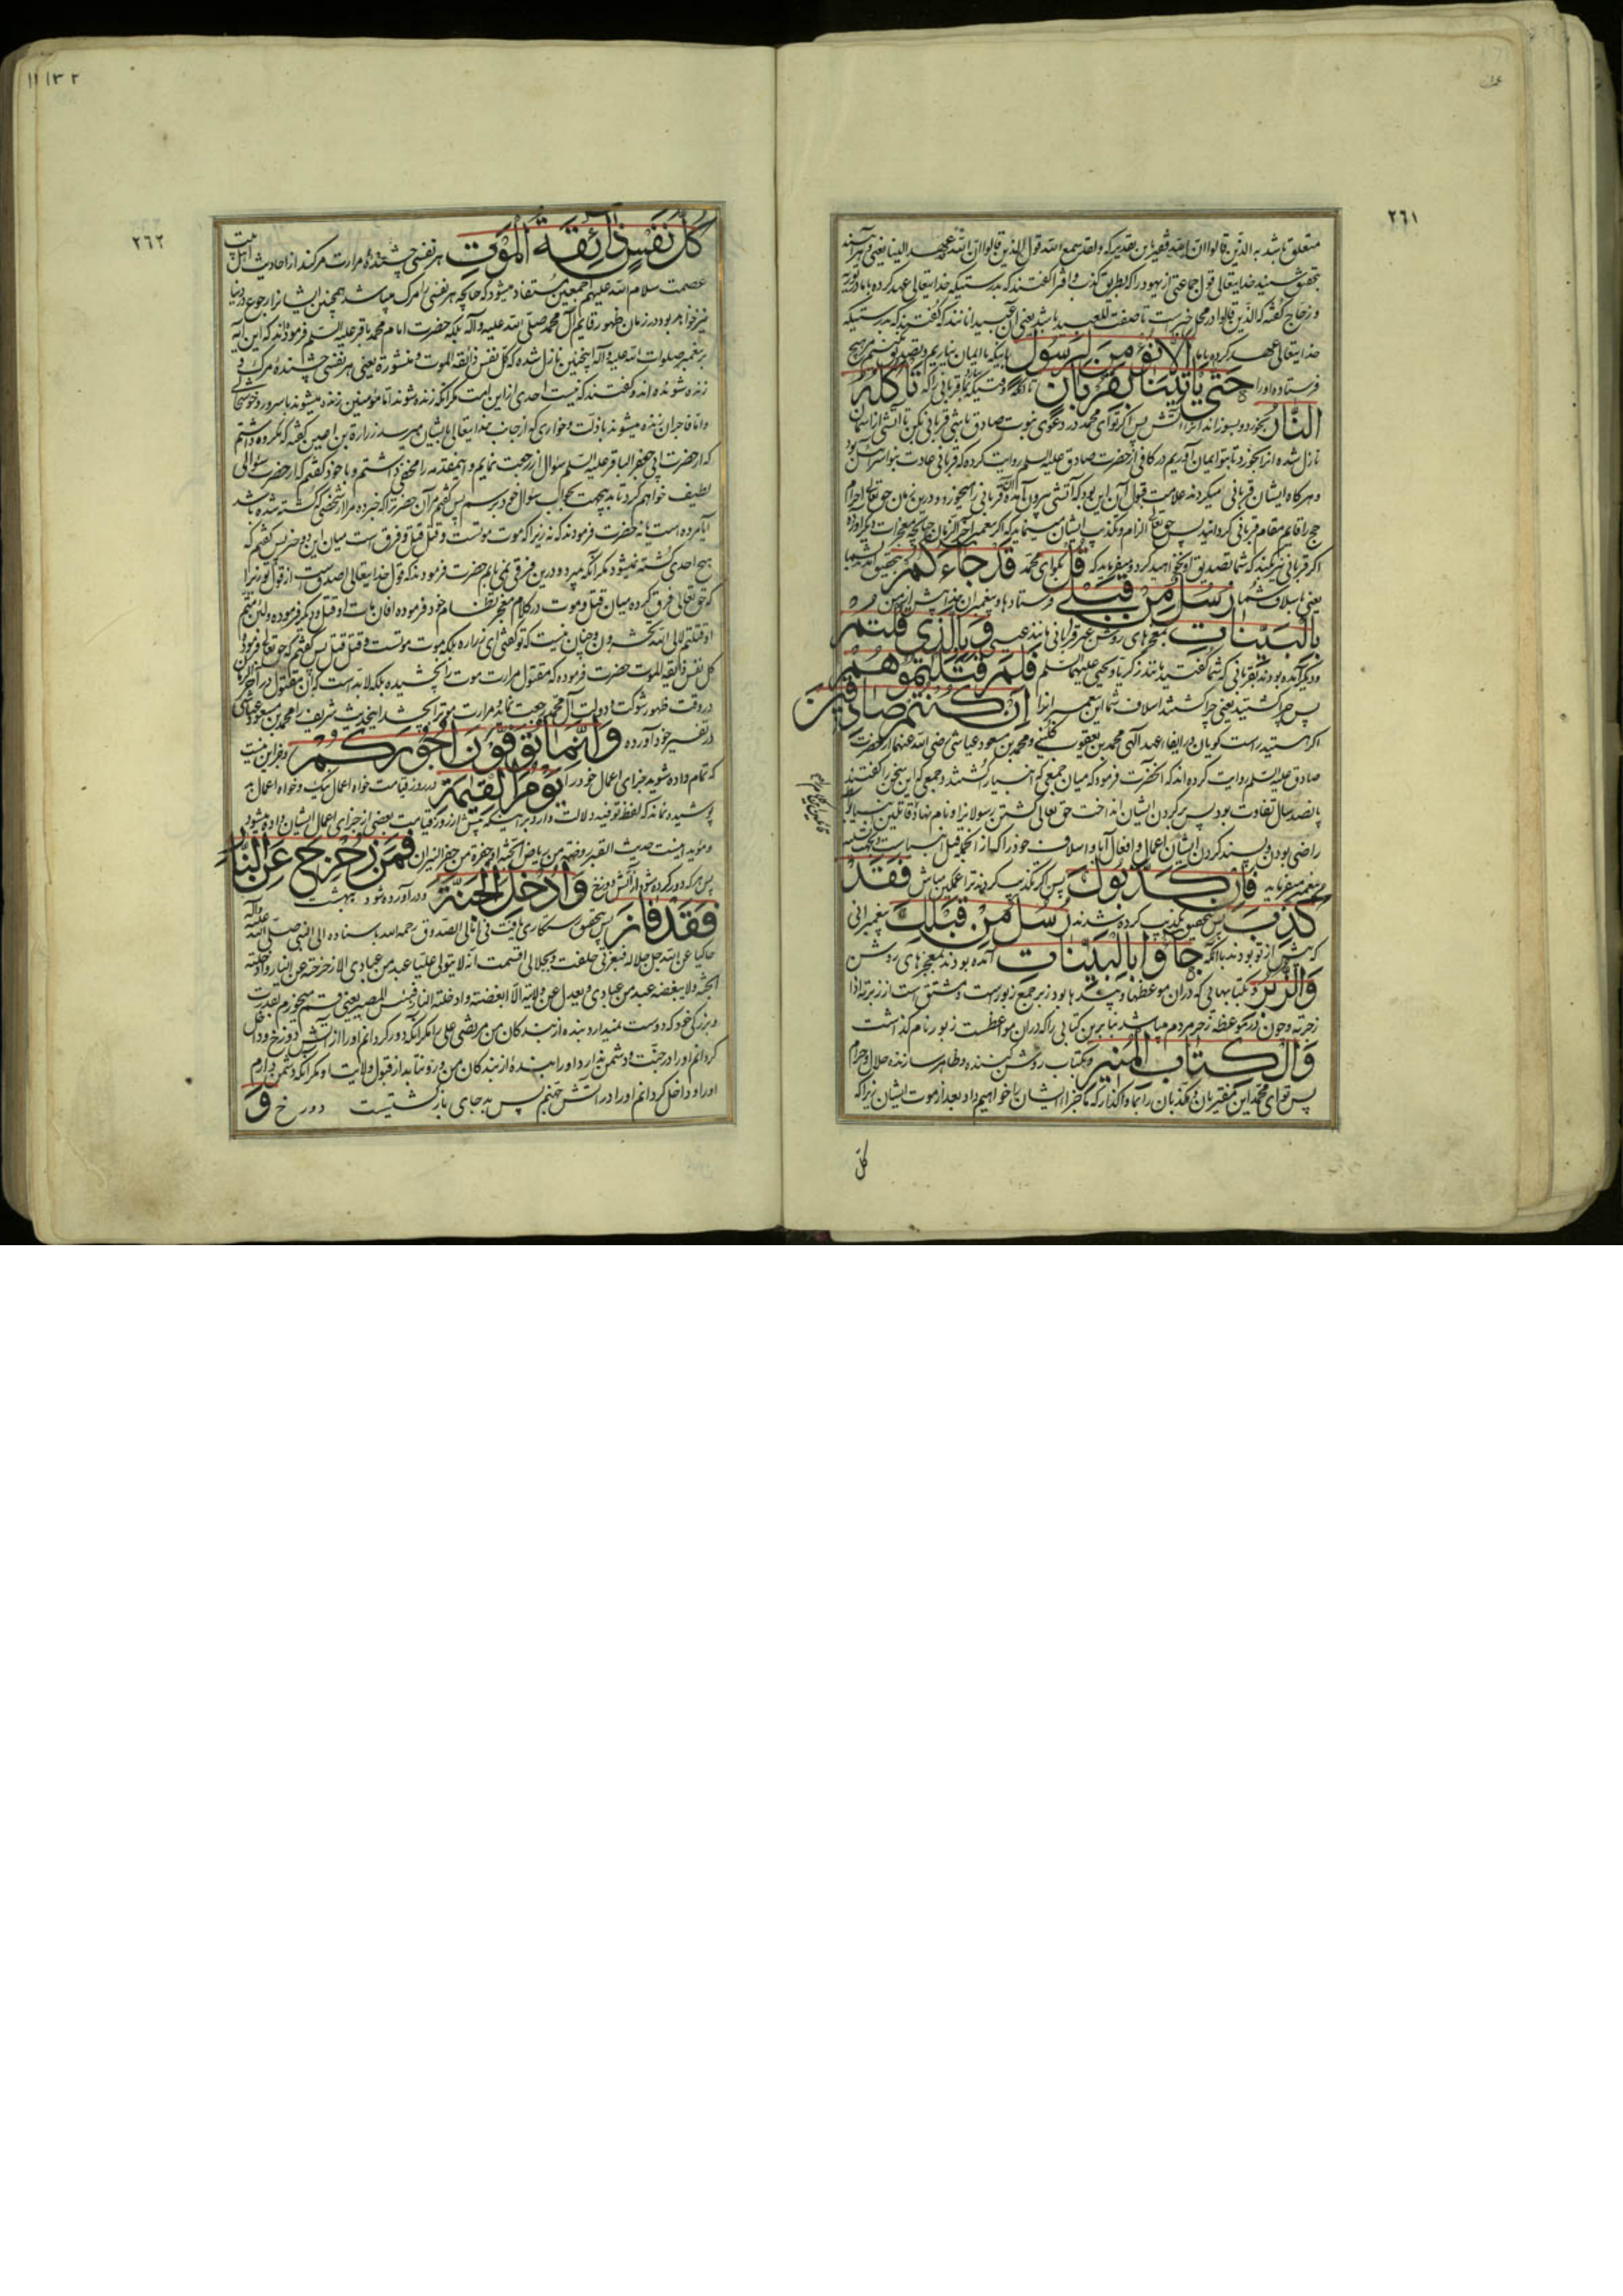 عمران
٢٦١
متعلق باشد به الذین قالوا ان الله فقیر باین تقدیر که و لقد سمع الله قول الذین قالوا ان الله عهد الینا یعنی و هر آینه
بتحقیق شنید خدایتعالی قول جماعتی از یهود را که بطریق کذب و افترا گفتند که بدرستیکه خدایتعالی عهد کرده با ما در توریة
و زجاج گفته که الذین قالوا در محل جر است تا صفت للعبید باشد یعنی آن عبیدانند که گفتند که بدرستیکه
خدایتعالی عهد کرده با ما الا نؤمن لرسول باینکه ما ایمان نیاریم و تصدیق نکنیم هیچ
فرستاده او را حتی یاتینا بقربان تا آنگه وقتیکه بیارد بما قربانی را که تاکله
النار بخورد و بسوزاند آنرا آتش پس اگر تو ای محمد در دعوی نبوت صادق باشی قربانی بکن تا آتشی از آسمان
نازل شده آنرا بخورد تا بتو ایمان آوریم در کافی از حضرت صادق علیه السلم روایت کرده که قربانی عادت بنو اسرائیل بود
و هرگاه ایشان قربانی میکردند علامت قبول آن این بود که آتشی بیرون آمده آن قربانی را میخورد و درین زمان حق تعالی احرام
حج را قایم مقام قربانی گردانید پس حق تعالی الزام و تکذیب ایشان مینماید که اگر پیغمبر آخر الزمان چنانچه معجزات دیگر آورده
اگر قربانی نیز بکند که شما تصدیق او نخواهید کرد و میفرماید که قل بگو ای محمد قد جاءکم بتحقیق آمد شما
یعنی باسلاف شما رسل من قبلی فرستادها و پیغمبران پیش از من
بالبینات بمعجزهای روشن غیر قربانی مانند عیسی و بالذی قلتم
و دیگر آمده بودند بقربانی که شما گفتید مانند زکریا و یحیی علیهما السلم فلم قتلتموهم
پس چرا کشتید یعنی چرا کشتند اسلاف شما این پیغمبر انرا ان کنتم صادقین
اگر هستید راست گویان در ایفاء عهد الهی محمد بن یعقوب کلینی و محمد بن مسعود عیاشی رضی الله عنهما از حضرت
صادق علیه السلم روایت کرده اند که آنحضرت فرمود که میان جمعی که انبیا را کشتند و جمعی که این سخن را گفتند
پانصد سال تفاوت بود پس بر گردن ایشان انداخت حق تعالی کشتن رسولانرا و نام نهاد قاتلین بسبب
راضی بودن و پسند کردن ایشان اعمال و افعال آبا و اسلاف خود را که از قتل انبیاست
پیغمبر میفرماید فان کذبوک پس اگر تکذیب کردند ترا غمگین مباش فقد
کذب پس بتحقیق تکذیب کرده شدند رسل من قبلک پیغمبرانی
که پیش از تو بودند با آنکه جاؤا بالبینات آمده بودند بمعجزهای روشن
والزبر و بکتابهایی که در آن موعظها و پندها بود زبر جمع زبور است و مشتق است از زبرته اذا
زجرته و چون در موعظه زجر مردم میباشد بنابرین کتابی را که در آن مواعظست زبور نام گذاشت
والکتاب المنیر و بکتاب روشن کننده و ظاهر سازنده حلال و حرام
پس تو ای محمد این مفتریان و مکذبان را بما واگذار که ما جزاء ایشان را خواهیم داد بعد از موت ایشان زیرا که
کل
١١١٣٢
٢٦٢
کل نفس ذائقة الموت هر نفسی چشنده مرارت مرگند از احادیث اهل بیت
عصمت سلام الله علیهم اجمعین مستفاد میشود که چنانچه هر نفسی را مرگ میباشد همچنین ایشانرا رجوع در دنیا
نیز خواهد بود در زمان ظهور قایم آل محمد صلی الله علیه و آله بلکه حضرت امام محمد باقر علیه السلم فرموده اند که این آیه
بر پیغمبر صلوات الله علیه و آله اینچنین نازل شده که کل نفس ذائقه الموت و منشورة یعنی هر نفسی چشنده مرگ و
زنده شونده اند و گفتند که نیست احدی از این امت مگر آنکه زنده شوند اما مؤمنین زنده میشوند با سرور و خوشحالی
و اما فاجران زنده میشوند با ذلت و خواری که از جانب خدایتعالی بایشان میرسد زرارة بن اعین گفته که مکروه داشتم
که از حضرت ابی جعفر الباقر علیه السلم سؤال از رجعت نمایم و اینمقدمه را مخفی داشتم و با خود گفتم که از حضرت سؤالی
لطیف خواهم کرد تا بدینجهت بجواب سؤال خود برسم پس گفتم بآن حضرت که خبر ده مرا از شخصی که کشته شده باشد
آیا مرده است یا نه حضرت فرمودند که نه زیرا که موت موتست و قتل قتل و فرق است میان این دو چیز پس گفتم که
هیچ احدی کشته نمیشود مگر آنکه میرد و درین فرقی نمی یابم حضرت فرمودند که قول خدایتعالی اصدقست از قول تو زیرا
که حق تعالی فرق کرده میان قتل و موت در کلام معجز نظام خود فرموده افان مات او قتل و دیگر فرموده و لئن متم
او قتلتم لالی الله تحشرون و چنان نیست که تو گفتی ای زراره بلکه موت موتست و قتل قتل پس گفتم که حق تعالی فرموده
کل نفس ذائقه الموت حضرت فرموده که مقتول مرارت موت را نچشیده بلکه لابد است که آن مقتول در آخر الزمان
در وقت ظهور شوکت و دولت آل محمد رجعت نماید و مرارت موت را بچشد اینحدیث شریف را محمد بن مسعود عیاشی
در تفسیر خود آورده و انما توفون اجورکم و جز این نیست
که تمام داده شوید جزای اعمال خود را یوم القیمة در روز قیامت خواه اعمال نیک و خواه اعمال بد
پوشیده نماند که لفظ توفیه دلالت دارد بر اینکه پیش از روز قیامت بعضی از جزای اعمال ایشان داده میشود
و مؤید اینست حدیث القبر روضة من ریاض الجنة او حفرة من حفر النیران فمن زحزح عن النار
پس هر که دور کرده شود از آتش دوزخ و ادخل الجنة و در آورده شود ببهشت
فقد فاز پس بتحقیق رستگاری یافت فی امالی الصدوق رحمه الله باسناده الی النبی صلی الله علیه و آله
حاکیا عن الله جل جلاله فبعزتی حلفت و بجلالی اقسمت انه لا یتولی علیا عبد من عبادی الا زحزحته عن النار و ادخلته
الجنة و لا یبغضه عبد من عبادی و یعدل عن ولایته الا ابغضته و ادخلته النار و بئس المصیر یعنی قسم میخورم بقدرت
و بزرگی خود که دوست نمیدارد بنده از بندگان من مرتضی علی را مگر آنکه دور گردانم او را از آتش دوزخ و داخل
گردانم او را در جنت و دشمن ندارد او را بنده از بندگان من و رو نتابد از قبول ولایت او مگر آنکه دشمن دارم
او را و داخل گردانم او را در آتش جهنم پس بد جای بازگشتیست دوزخ و